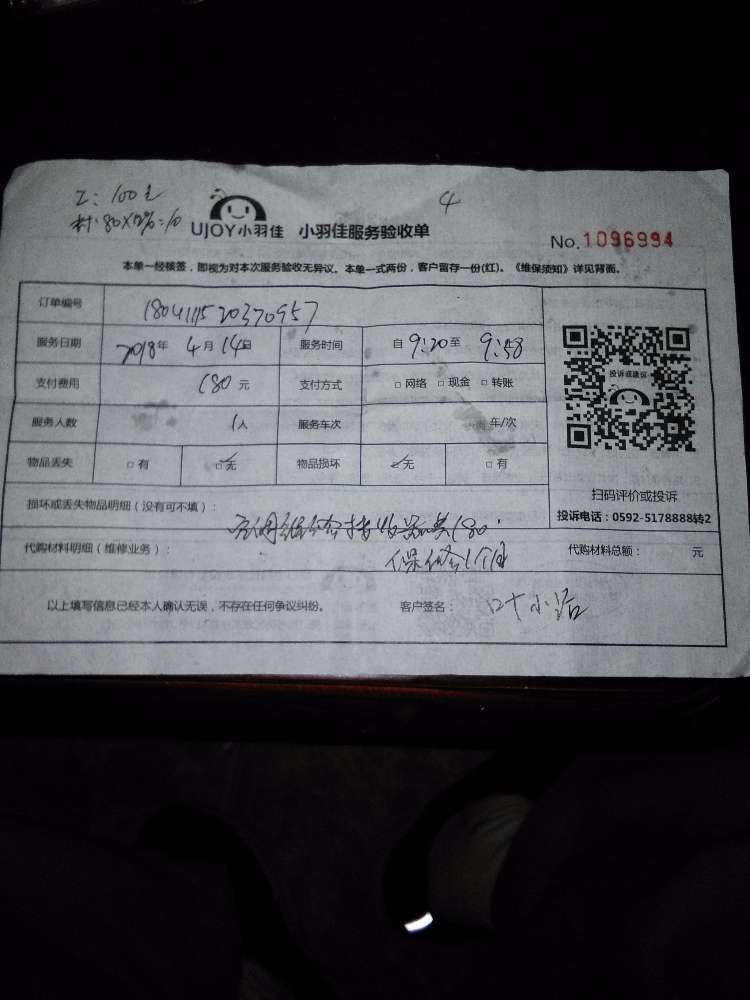 工: 100元 4
材: 80X
UJOY小羽佳 小羽佳服务验收单
No.1096994
本单一经核签，即视为对本次服务验收无异议。本单一式两份，客户留存一份(红)。《维保须知》详见背面。
订单编号 1804111520370957
服务日期 2018年 4月 14日 服务时间 自 9:20至 9:58
支付费用 180元 支付方式 □网络 □现金 □转账
服务人数 1人 服务车次 车/次
物品丢失 □有 ☑无 物品损坏 ☑无 □有
投诉或建议
扫码评价或投诉
投诉电话：0592-5178888转2
损坏或丢失物品明细（没有可不填）：
180.
代购材料明细（维修业务）： 保修1个月 代购材料总额： 元
以上填写信息已经本人确认无误，不存在任何争议纠纷。 客户签名： 叶小